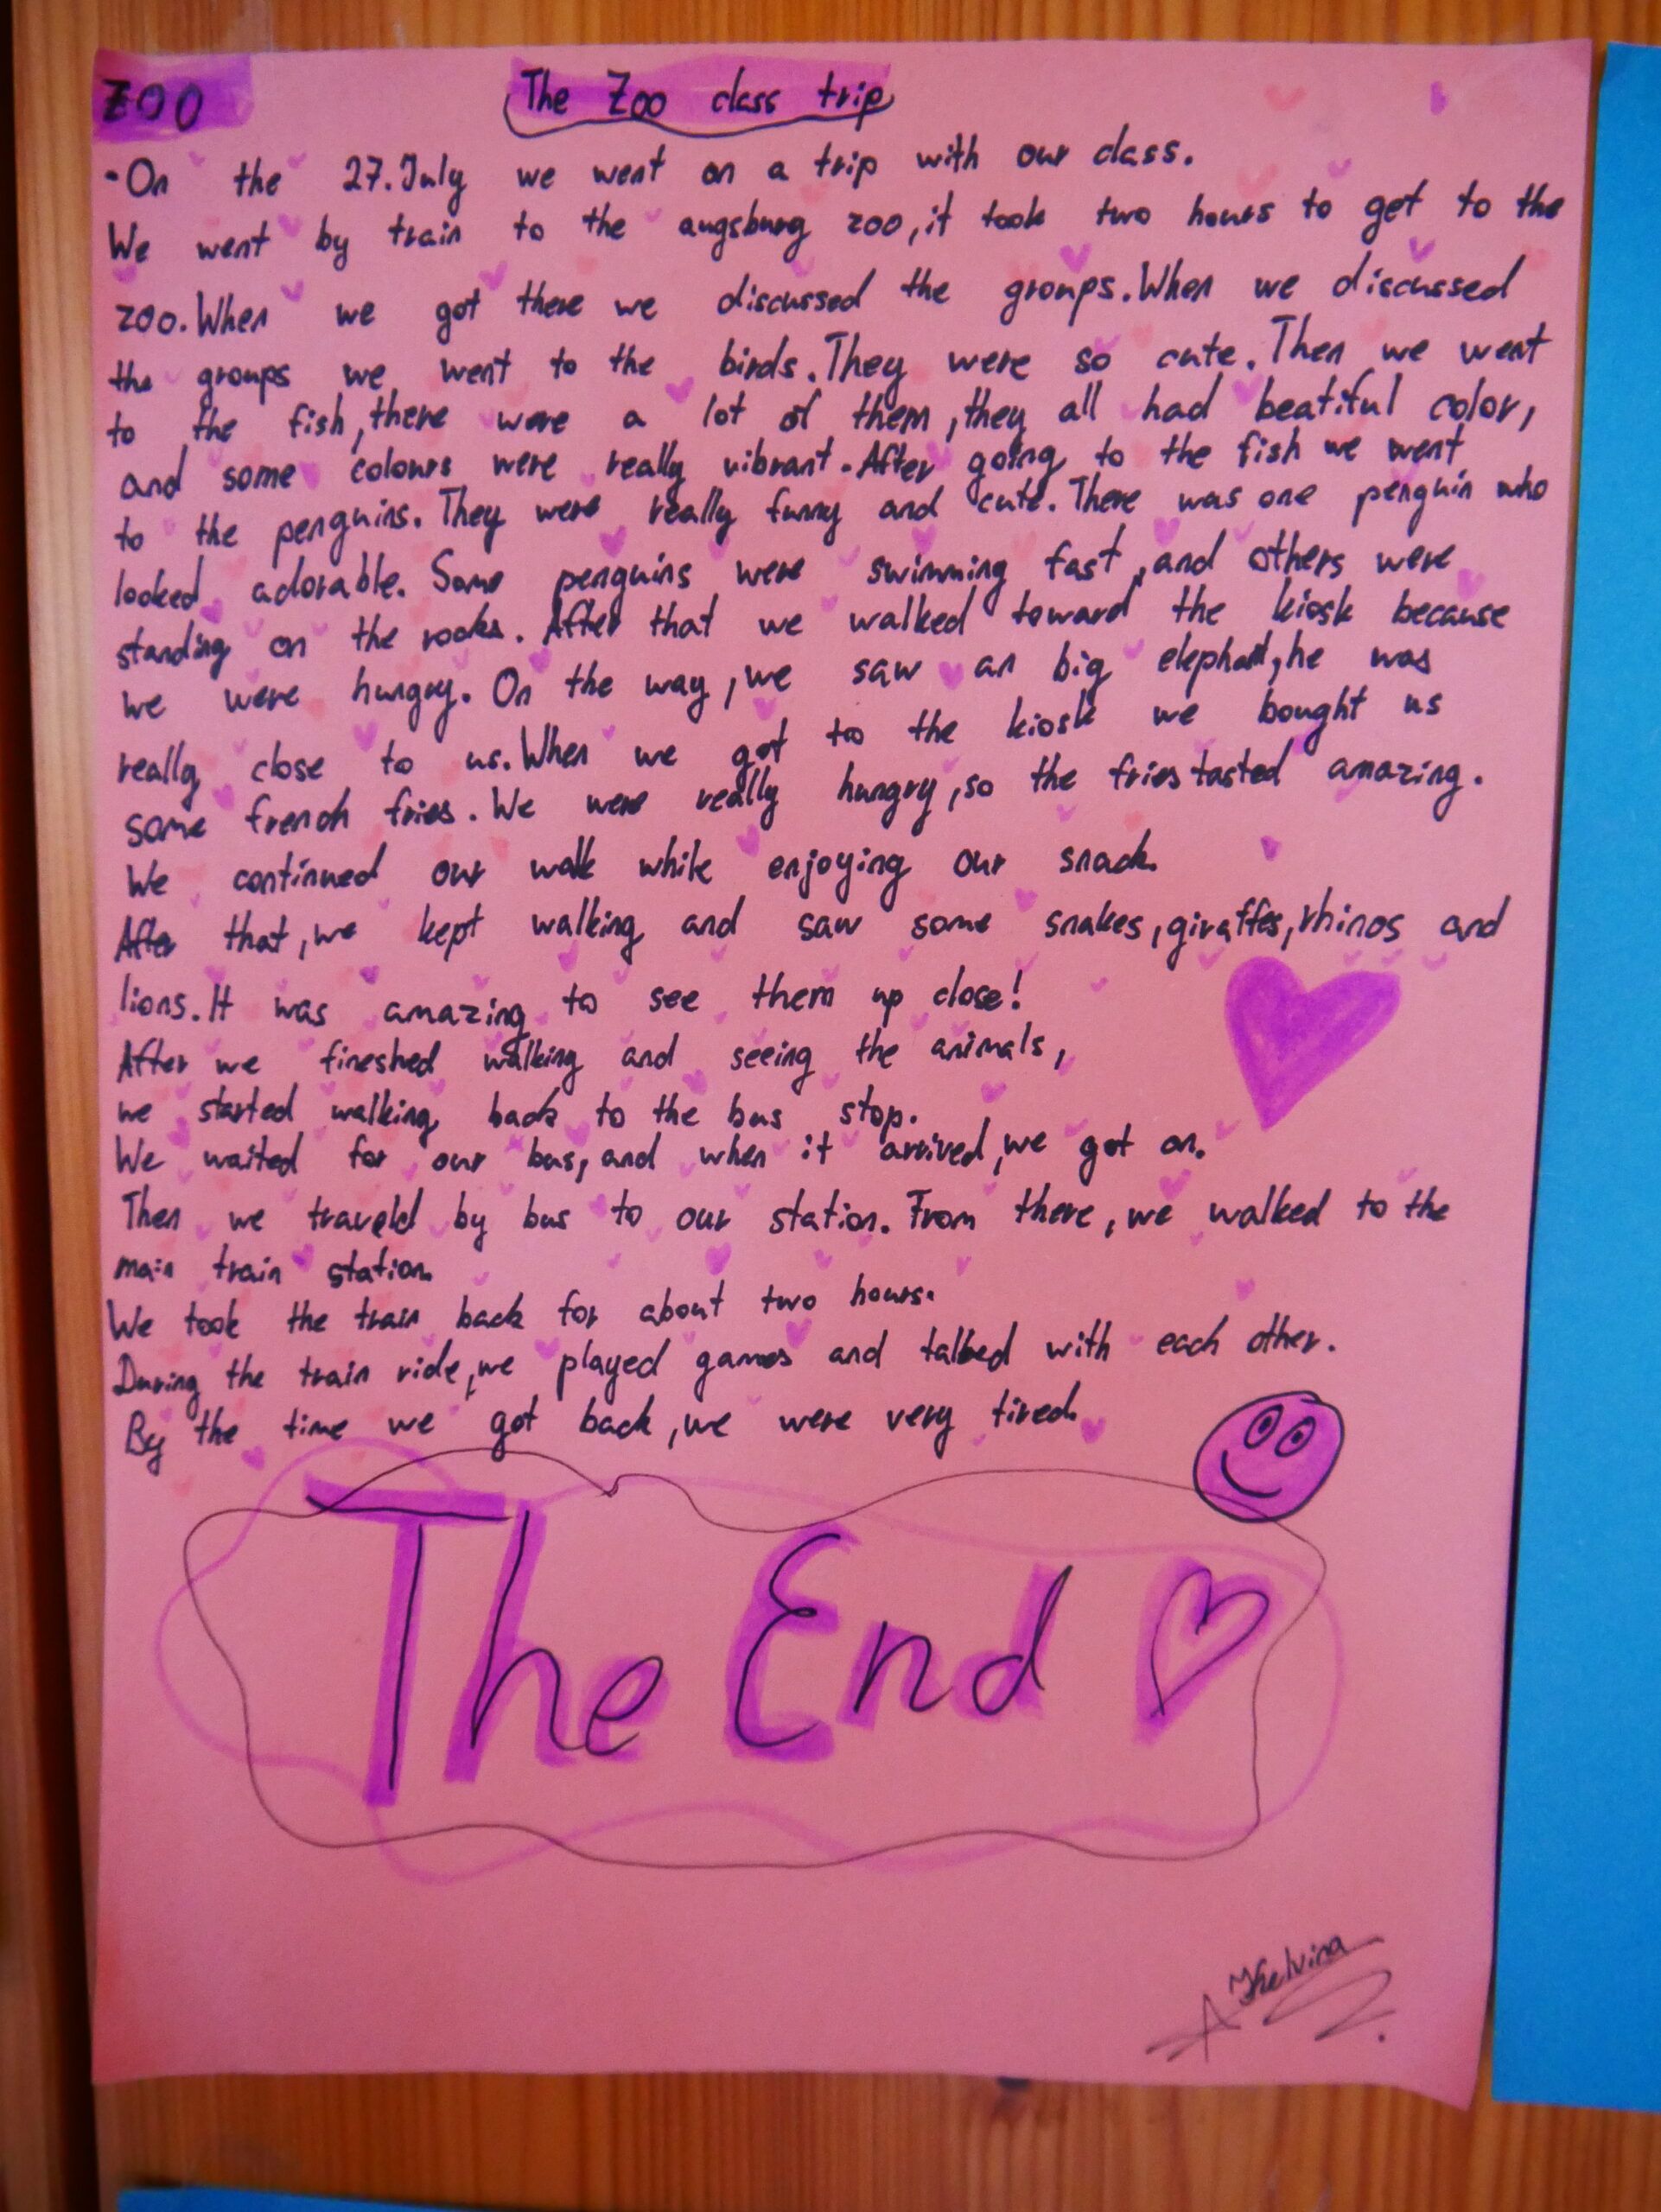 ZOO
The Zoo class trip
-On the 27.July we went on a trip with our class.
We went by train to the augsburg zoo, it took two hours to get to the
zoo. When we got there we discussed the groups. When we discussed
the groups we went to the birds. They were so cute. Then we went
to the fish, there were a lot of them, they all had beatiful color,
and some colours were really vibrant. After going to the fish we went
to the penguins. They were really funny and cute. There was one penguin who
looked adorable. Some penguins were swimming fast, and others were
standing on the rocks. After that we walked toward the kiosk because
we were hungry. On the way, we saw an big elephant, he was
really close to us. When we got to the kiosk we bought us
some french fries. We were really hungry, so the fries tasted amazing.
We continued our walk while enjoying our snack.
After that, we kept walking and saw some snakes, giraffes, rhinos and
lions. It was amazing to see them up close!
After we fineshed walking and seeing the animals,
we started walking back to the bus stop.
We waited for our bus, and when it arrived, we got on.
Then we traveld by bus to our station. From there, we walked to the
main train station.
We took the train back for about two hours.
During the train ride, we played games and talked with each other.
By the time we got back, we were very tired.
The End